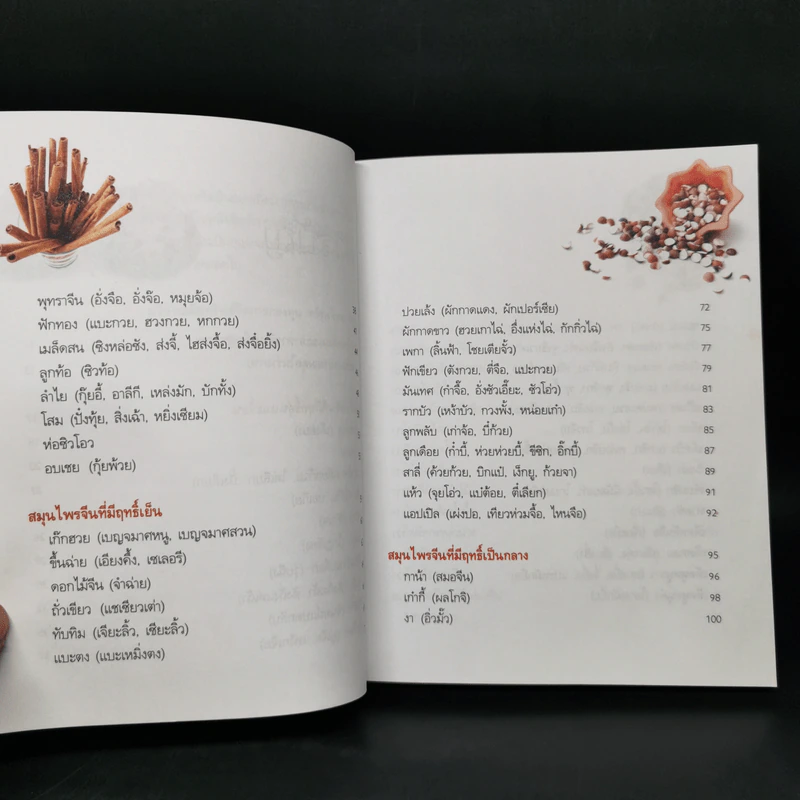 พุทราจีน (อั่งจือ, อั่งจ๊อ, หมุยจ้อ)
ฟักทอง (แบะกวย, ฮวงกวย, หกกวย)
เมล็ดสน (ซิงหล่อซัง, ส่งจี้, ไฮส่งจื้อ, ส่งจื่อยิ้ง)
ลูกท้อ (ซิวท้อ)
ลำไย (กุ๊ยอี้, อาลีกี, เหล่งมัก, บักทั้ง)
โสม (ปั๋งทุ้ย, สิ่งเฉ้า, หยิ่งเซียม)
ห่อซิวโอว
อบเชย (กุ้ยพ้วย)
สมุนไพรจีนที่มีฤทธิ์เย็น
เก๊กฮวย (เบญจมาศหนู, เบญจมาศสวน)
ขึ้นฉ่าย (เอียงคึ้ง, เซเลอรี)
ดอกไม้จีน (จำฉ่าย)
ถั่วเขียว (แชเชียวเต่า)
ทับทิม (เจียะลิ้ว, เซียะลิ้ว)
แบะตง (แบะเหมิ่งตง)
ปวยเล้ง (ผักกาดแดง, ผักเปอร์เซีย) 72
ผักกาดขาว (ฮวยเกาไฉ่, อึ่งแห่งไฉ่, กักกิ่วไฉ่) 75
เพกา (ลิ้นฟ้า, โชยเตียจั้ว) 77
ฟักเขียว (ตังกวย, ตี่จือ, แปะกวย) 79
มันเทศ (กำจื๊อ, อั่งชัวเอี๊ยะ, ชัวโอ่ว) 81
รากบัว (เหง้าบัว, กวงพั้ง, หน่อยเก๋า) 83
ลูกพลับ (เก่าจ้อ, บี่ก้วย) 85
ลูกเดือย (ก๋ำบี้, ห่วยห่วยบี้, ขีซิก, อิ๊กบี้) 87
สาลี่ (ค้วยก้วย, บิกแป๋, เง็กยู, ก้วยจา) 89
แห้ว (จุยโอ่ว, แบ่ต้อย, ตี่เลียก) 91
แอปเปิล (เผ่งปอ, เทียวห่วมจื้อ, ไหนจือ) 92
สมุนไพรจีนที่มีฤทธิ์เป็นกลาง 95
กาน้า (สมอจีน) 96
เก๋ากี้ (ผลโกจิ) 98
งา (อิ่วมั๊ว) 100